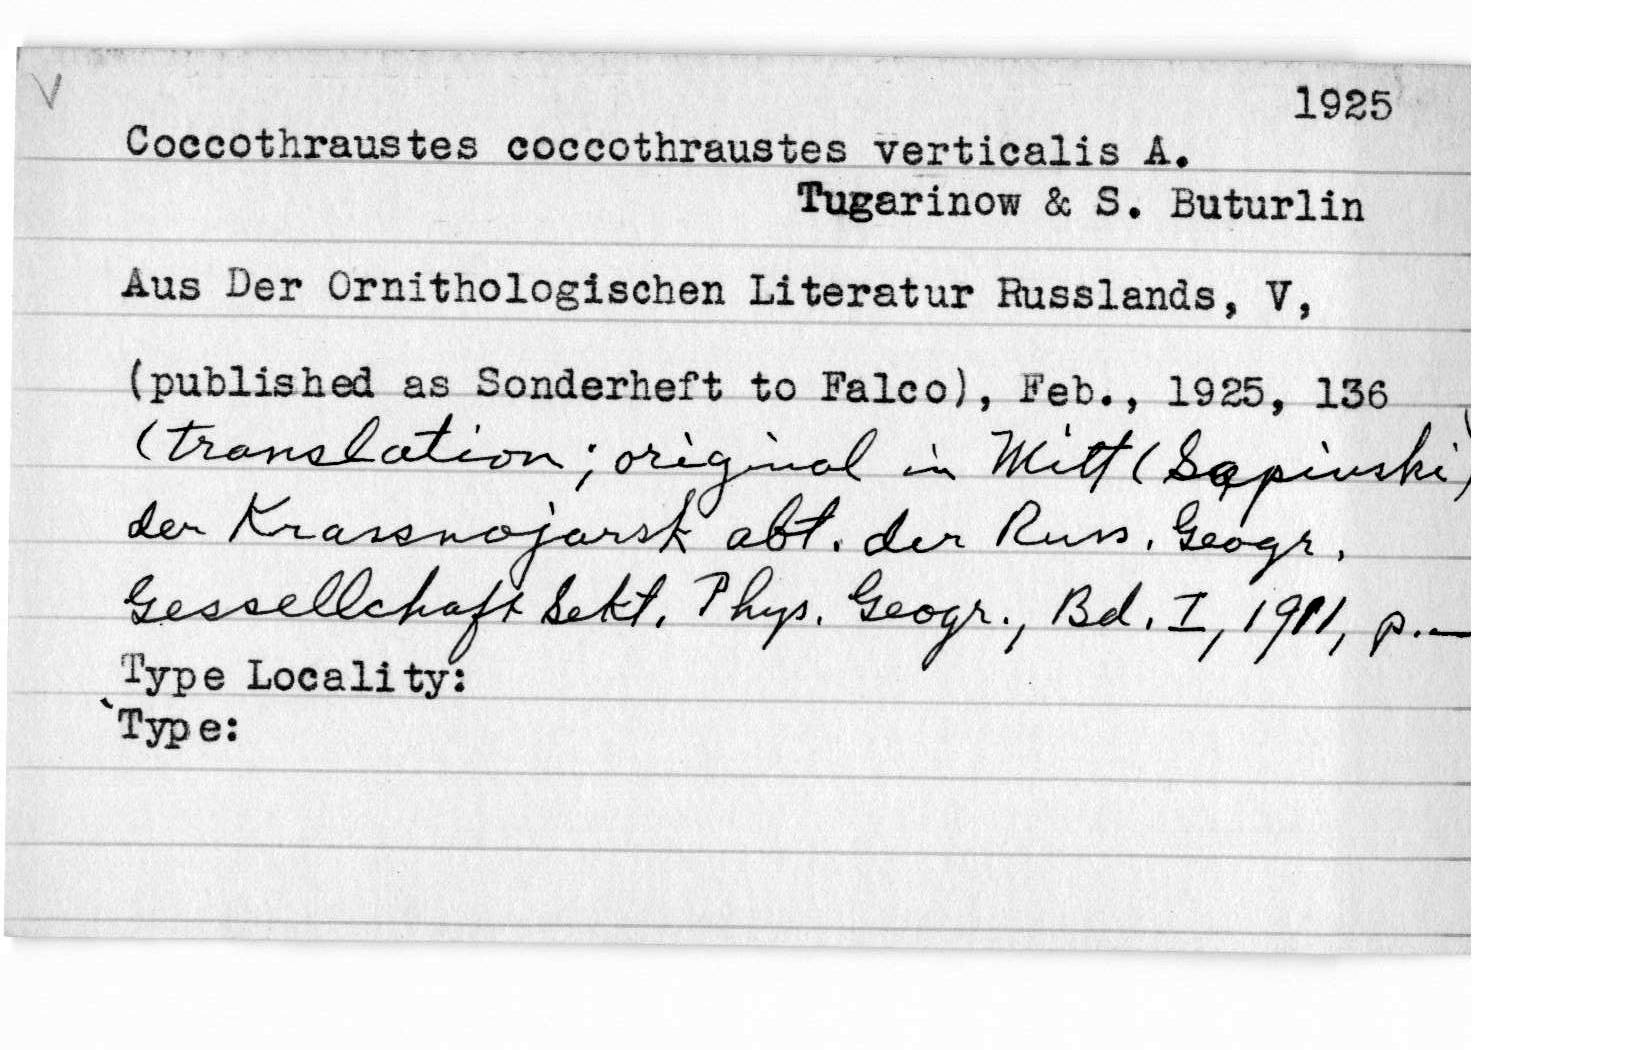 V
1925
Coccothraustes coccothraustes verticalis A.
Tugarinow & S. Buturlin
Aus Der Ornithologischen Literatur Russlands, V,
(published as Sonderheft to Falco), Feb., 1925, 136
(translation; original in Mitt (Sapinski)
der Krassnojarsk abt. der Russ. Geogr.
Gessellchaft Sekt. Phys. Geogr., Bd. I, 1911, p.—
Type Locality:
Type: